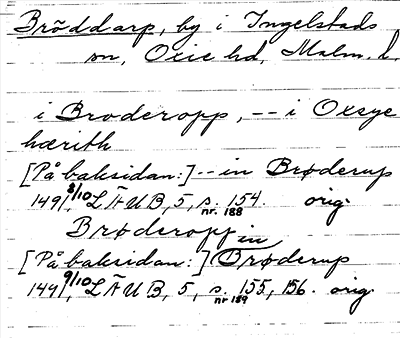 Bröddarp, by i Ingelstads
sn, Oxie hd, Malm. l.
i Broderopp, -- i Oxsye
hærith
[På baksidan:] -- in Brøderup
1491 8/10 LÄUB, 5, s. 154. orig.
nr. 188
Brøderopp
[På baksidan:] in Brøderup
1491 9/10 LÄUB, 5, s. 155, 156. orig.
nr 189